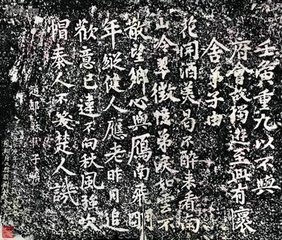 壬寅重九以不與
府會故獨遊至此有懷
舍弟子由
花開酒美曷不醉来看南
山冷翠微憶弟淚如雲不
散望鄉心與鴈南飛明
年縱健人應老昨日追
歡意已違不向秋風強吹
帽秦人不笑楚人譏
趙郡蘇軾 子瞻